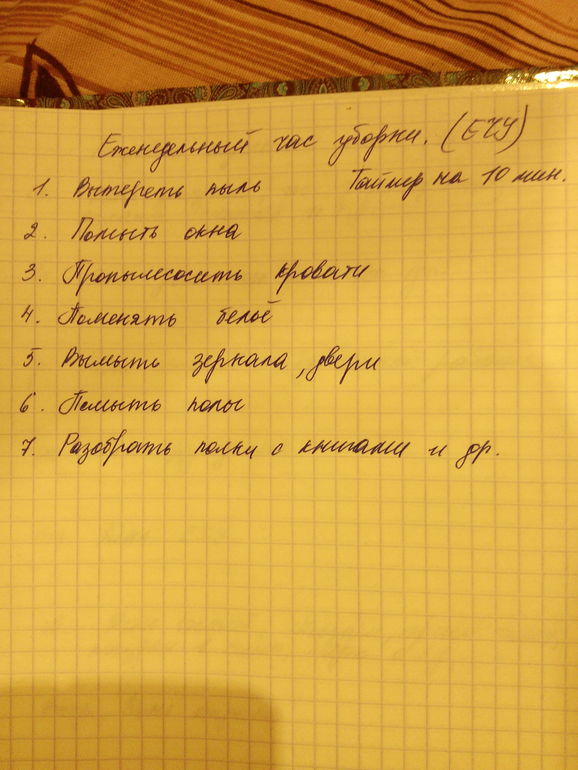 Еженедельный час уборки. (ЕЧУ)
1. Вытереть пыль Таймер на 10 мин.
2. Помыть окна
3. Пропылесосить кровати
4. Поменять бельё
5. Вымыть зеркала, двери
6. Помыть полы
7. Разобрать полки с книгами и др.